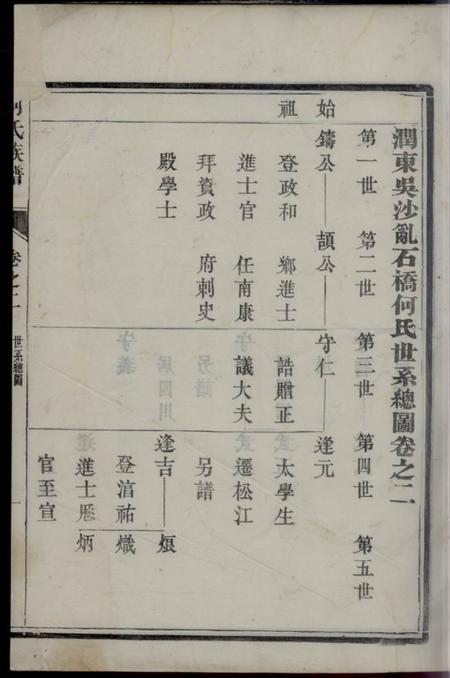 潤東吳沙亂石橋何氏世系總圖卷之二
第一世 第二世 第三世 第四世 第五世
始 鑄公 頡公 守仁 逢元
祖 登政和 鄉進士 誥贈正 太學生
進士官 任南康 議大夫 遷松江
拜資政 府刺史 另譜
殿學士 逢吉 烺
登淯祐 熾
進士歷 炳
官至宣
氏族譜
卷之二
世系總圖